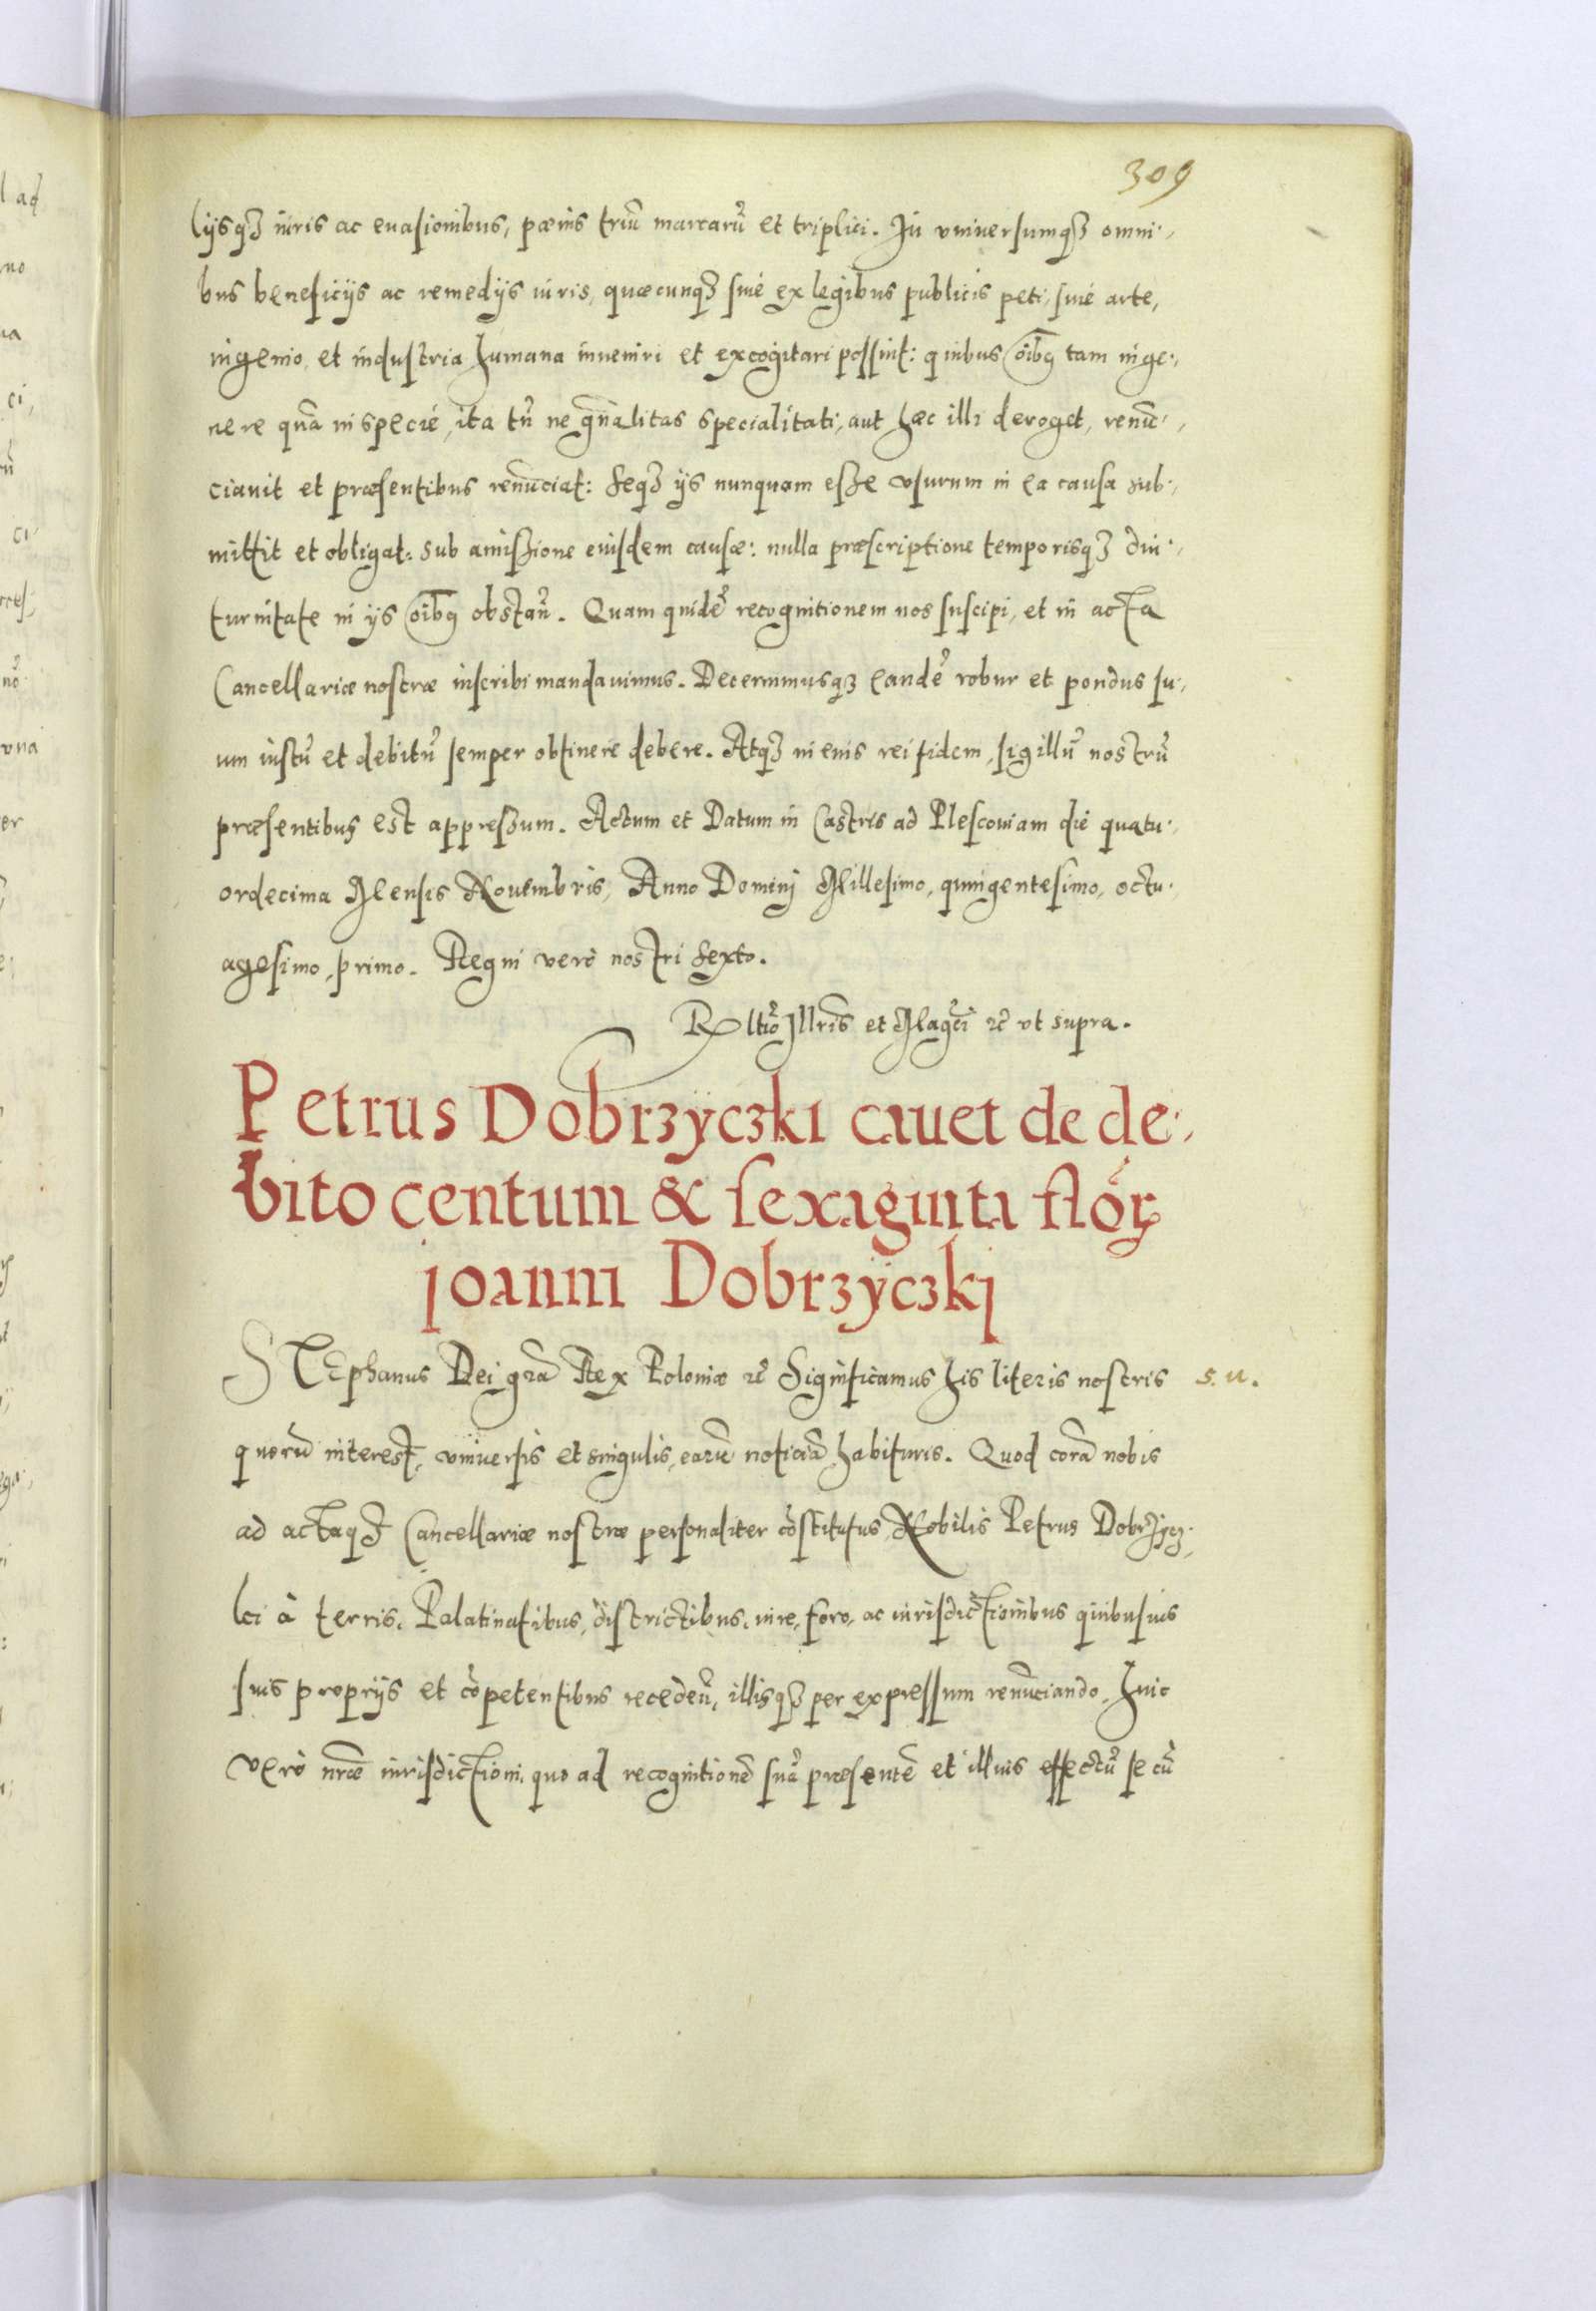 309
lijsqȝ iuris ac euasionibus, pœnis triū marcarū et triplici. In vniuersumqȝ omni-
bus beneficijs ac remedijs iuris, quæcunqȝ siué ex legibus publicis peti, siué arte,
ingenio, et industria humana inueniri et excogitari possint: quibus oībꝫ tam in ge-
nere quā in specié, ita tn̄ ne gn̄alitas specialitati, aut hæc illi deroget, renūc-
ciauit et præsentibus renūciat: seqȝ ijs nunquam esse vsurum in ea causa sub-
mittit et obligat: sub amissione eiusdem causæ: nulla præscriptione temporisqȝ diu-
turnitate in ijs oībꝫ obstan̄. Quam quidē recognitionem nos suscipi, et in acta
Cancellariæ nostræ inscribi mandauimus. Decernimusqȝ eandē robur et pondus su-
um iustū et debitū semper obtinere debere. Atqȝ in eius rei fidem, sigillū nostrū
præsentibus est appressum. Actum et Datum in Castris ad Plescouiam dié quatu-
ordecima Mensis Nouembris, Anno Dominj Millesimo, quingentesimo, octu-
agesimo, primo. Regni verò nostri sexto.
Rltio Illris et Magci ꝛc̄ vt supra.
Petrus Dobrzyczki cauet de de-
bito centum & sexaginta florꝝ
joanni Dobrzyczkj
STEphanus Dei gr̄a Rex Poloniæ ꝛc̄ Significamus his literis nostris s. u.
quorū interest, vniuersis et singulis, earū noticiā habituris. Quod corā nobis
ad actaqȝ Cancellariæ nostræ personaliter cōstitutus Nobilis Petrus Dobrzycz-
ki à terris, Palatinatibus, districtibus, iure, foro, ac iurisdictionibus quibusuis
suis proprijs et cōpetentibus recedēn, illisqȝ per expressum renūciando, huic
verò nrǣ iurisdictioni, quo ad recognitionē suā præsentē et illius effectū se cū